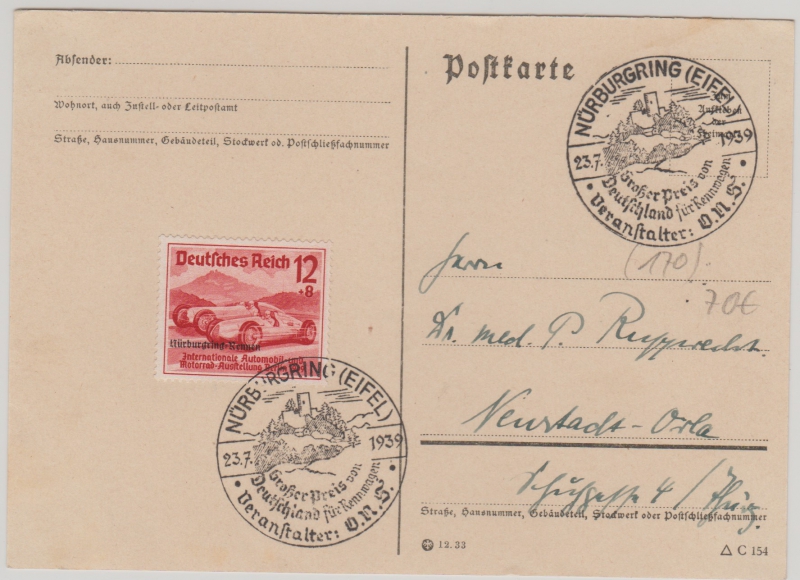 Absender:
Wohnort, auch Zustell- oder Leitpostamt
Straße, Hausnummer, Gebäudeteil, Stockwerk od. Postschließfachnummer
Deutsches Reich 12
+8
Nürburgring-Rennen
Internationale Automobil- und
Motorrad-Ausstellung
NÜRBURGRING (EIFEL)
23.7. 1939
Großer Preis von
Deutschland für Rennwagen
• Veranstalter: O.N.S. •
Postkarte
NÜRBURGRING (EIFEL)
23.7. 1939
Großer Preis von
Deutschland für Rennwagen
• Veranstalter: O.N.S. •
(170).
70€
Herrn
Dr. med. P. Rupprecht.
Neustadt-Orla
4 / Thür.
Straße, Hausnummer, Gebäudeteil, Stockwerk oder Postschließfachnummer
12.33
C 154